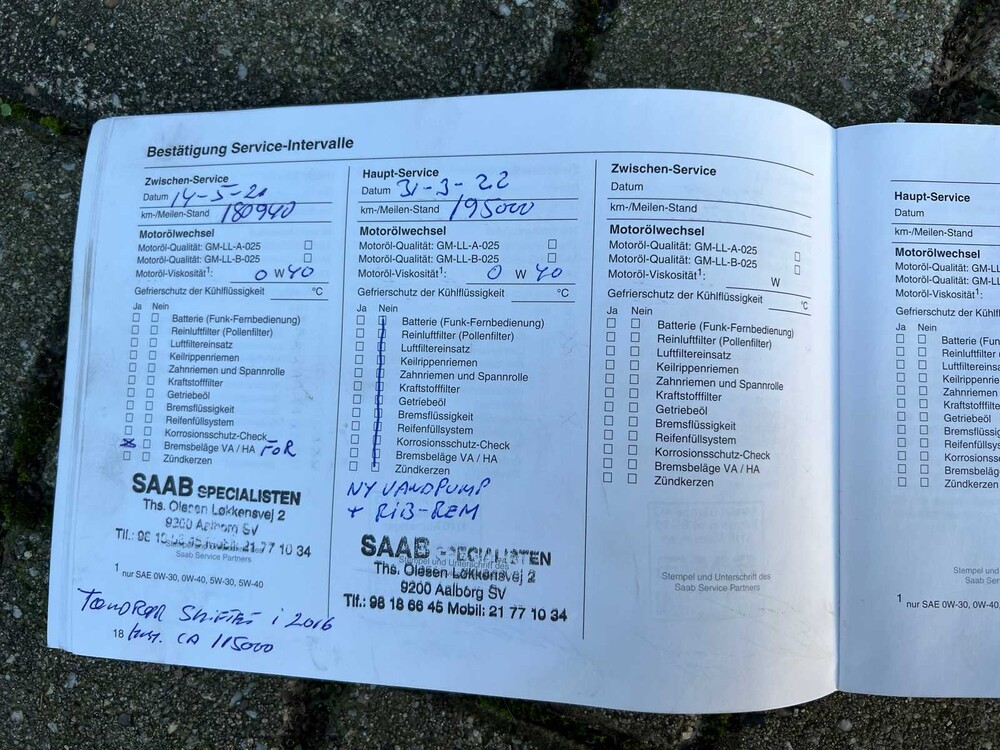 Bestätigung Service-Intervalle
Zwischen-Service
Datum 14-5-20
km-/Meilen-Stand 180940
Motorölwechsel
Motoröl-Qualität: GM-LL-A-025 ☐
Motoröl-Qualität: GM-LL-B-025 ☐
Motoröl-Viskosität¹: 0 W 40
Gefrierschutz der Kühlflüssigkeit °C
Ja Nein
☐ ☐ Batterie (Funk-Fernbedienung)
☐ ☐ Reinluftfilter (Pollenfilter)
☐ ☐ Luftfiltereinsatz
☐ ☐ Keilrippenriemen
☐ ☐ Zahnriemen und Spannrolle
☐ ☐ Kraftstofffilter
☐ ☐ Getriebeöl
☐ ☐ Bremsflüssigkeit
☐ ☐ Reifenfüllsystem
☐ ☐ Korrosionsschutz-Check
☒ ☐ Bremsbeläge VA / HA FOR
☐ ☐ Zündkerzen
SAAB SPECIALISTEN
Ths. Olesen Løkkensvej 2
9200 Aalborg SV
Tlf.: 98 18 66 45 Mobil: 21 77 10 34
Saab Service Partners
1 nur SAE 0W-30, 0W-40, 5W-30, 5W-40
TANDREM SKIFTET i 2016
18
CA 115000
Haupt-Service
Datum 31-3-22
km-/Meilen-Stand 195000
Motorölwechsel
Motoröl-Qualität: GM-LL-A-025 ☐
Motoröl-Qualität: GM-LL-B-025 ☐
Motoröl-Viskosität¹: 0 W 40
Gefrierschutz der Kühlflüssigkeit °C
Ja Nein
☐ ☐ Batterie (Funk-Fernbedienung)
☐ ☐ Reinluftfilter (Pollenfilter)
☐ ☐ Luftfiltereinsatz
☐ ☐ Keilrippenriemen
☐ ☐ Zahnriemen und Spannrolle
☐ ☐ Kraftstofffilter
☐ ☐ Getriebeöl
☐ ☐ Bremsflüssigkeit
☐ ☐ Reifenfüllsystem
☐ ☐ Korrosionsschutz-Check
☐ ☐ Bremsbeläge VA / HA
☐ ☐ Zündkerzen
NY VANDPUMP
+ RIB-REM
SAAB SPECIALISTEN
Stempel und Unterschrift des
Ths. Olesen Løkkensvej 2
9200 Aalborg SV
Tlf.: 98 18 66 45 Mobil: 21 77 10 34
Zwischen-Service
Datum
km-/Meilen-Stand
Motorölwechsel
Motoröl-Qualität: GM-LL-A-025 ☐
Motoröl-Qualität: GM-LL-B-025 ☐
Motoröl-Viskosität¹: W
Gefrierschutz der Kühlflüssigkeit °C
Ja Nein
☐ ☐ Batterie (Funk-Fernbedienung)
☐ ☐ Reinluftfilter (Pollenfilter)
☐ ☐ Luftfiltereinsatz
☐ ☐ Keilrippenriemen
☐ ☐ Zahnriemen und Spannrolle
☐ ☐ Kraftstofffilter
☐ ☐ Getriebeöl
☐ ☐ Bremsflüssigkeit
☐ ☐ Reifenfüllsystem
☐ ☐ Korrosionsschutz-Check
☐ ☐ Bremsbeläge VA / HA
☐ ☐ Zündkerzen
Stempel und Unterschrift des
Saab Service Partners
Haupt-Service
Datum
km-/Meilen-Stand
Motorölwechsel
Motoröl-Qualität: GM-LL
Motoröl-Qualität: GM-LL
Motoröl-Viskosität¹:
Gefrierschutz der Kühlfl
Ja Nein
☐ ☐ Batterie (Fun
☐ ☐ Reinluftfilter (
☐ ☐ Luftfiltereinsa
☐ ☐ Keilrippenrie
☐ ☐ Zahnriemen
☐ ☐ Kraftstofffilte
☐ ☐ Getriebeöl
☐ ☐ Bremsflüssig
☐ ☐ Reifenfüllsys
☐ ☐ Korrosionss
☐ ☐ Bremsbeläg
☐ ☐ Zündkerzen
Stempel und
Saab Ser
1 nur SAE 0W-30, 0W-4